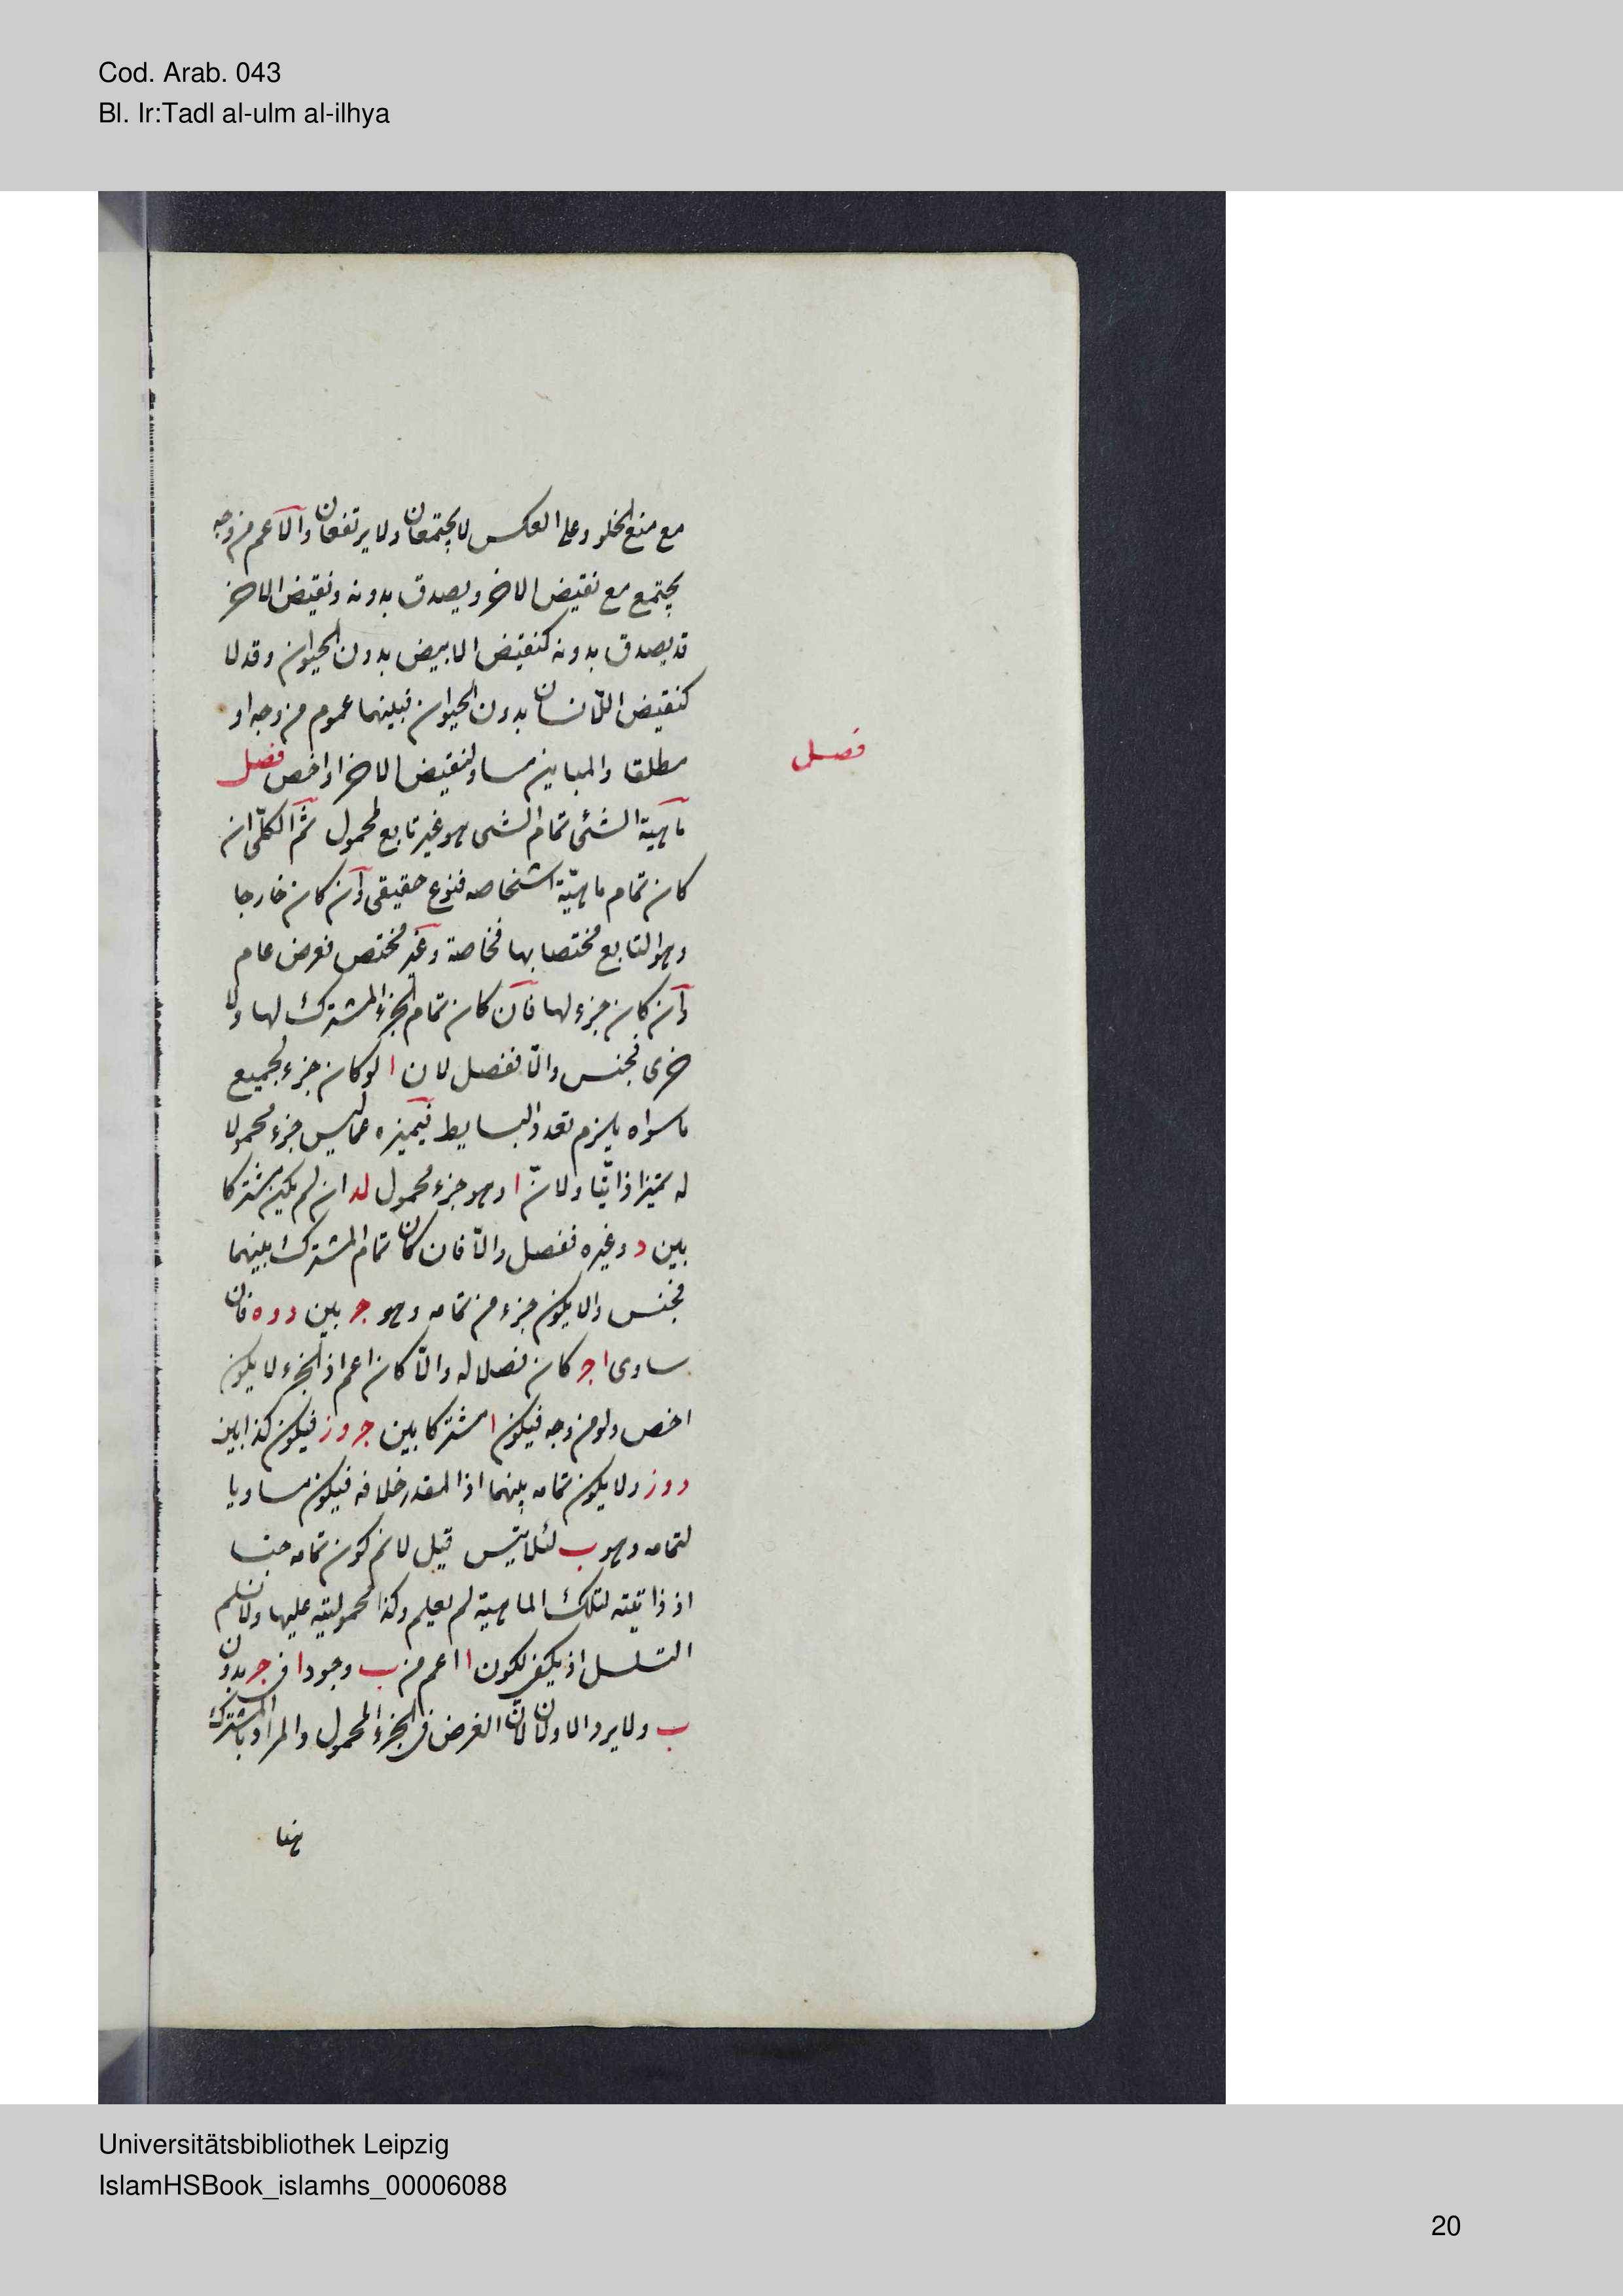 Cod. Arab. 043
Bl. Ir:Tadl al-ulm al-ilhya
مع منع الخلو وعلى العكس لا يجتمعان ولا يرتفعان والاعم من وجه
يجتمع مع نقيض الاخر ويصدق بدونه ونقيض الاخر
قد يصدق بدونه كنقيض الابيض بدون الحيوان وقد لا
كنقيض اللاانسان بدون الحيوان فبينهما عموم من وجه او
مطلقا والمباين مساو لنقيض الاخر او اخص فصل
فصل
ماهية الشئ تمام الشى هو غير تابع لمحمول ثم الكلّى ان
كان تمام ماهيّة اشخاصه فنوع حقيقى وان كان خارجا
وهو التابع مختصا بها فخاصة وغير مختص فعرض عام
وان كان جزء لها فان كان تمام الجزء المشترك لها ولا
خرى فجنس والّا ففصل لان ا لو كان جزء لجميع
ماسواه يلزم تعدد البسايط فيميزه عما ليس جزء محمولا
له تميزا ذاتيّا ولانّ ا وهو جزء محمول لد ان لم يكن مشتركا
بين د وغيره ففصل والّا فان كان تمام المشترك بينهما
فجنس والا يكون جزء من تمامه وهو ج بين د وه فان
ساوى ا ج كان فصلا له والّا كان اعم اذ الجزء لا يكون
اخص ولو من وجه فيكون ا مشتركا بين ج وز فيكون كذا بين
د وز ولا يكون تمامه بينهما اذ المقدر خلافه فيكون مساويا
لتمامه وهو ب لئلا يتس قيل لانم كون تمامه جنسا
اذ ذاتيّته لتلك الماهية لم يعلم وكذا محموليته عليها ولا نسلم
التسلسل اذ يكفى لكون ا اعم من ب وجود ا فى ج بدون
ب ولا يرد الاولان لانّ الغرض فى الجزء المحمول والمراد بالمشترك
هنا
Universitätsbibliothek Leipzig
IslamHSBook_islamhs_00006088
20